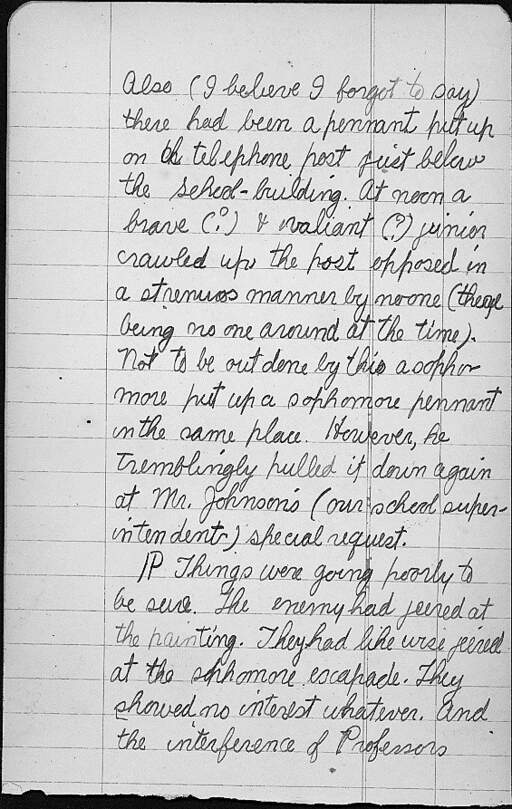 Also (I believe I forgot to say)
there had been a pennant put up
on the telephone post just below
the school-building. At noon a
brave (?) & valiant (?) junior
crawled up the post opposed in
a strenuos manner by no one (there
being no one around at the time).
Not to be out done by this a sopho-
more put up a sophomore pennant
in the same place. However, he
tremblingly pulled it down again
at Mr. Johnson's (our school super-
intendents) special request.
¶ Things were going poorly to
be sure. The enemy had jeered at
the painting. They had like wise jeered
at the sophomore escapade. They
showed no interest whatever. And
the interference of Professors